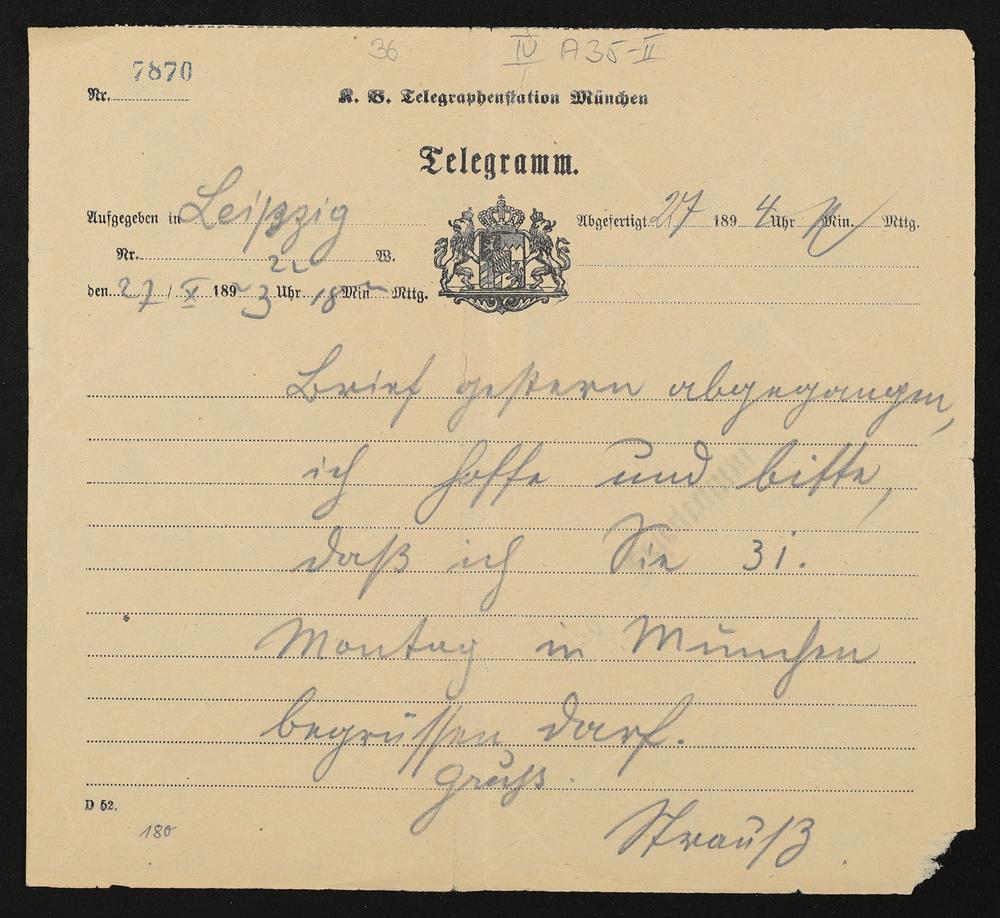 36 IV A35-II
7870
Nr.
K. B. Telegraphenstation München
Telegramm.
Aufgegeben in Leipzig
Abgefertigt 27 189 4 Uhr Min. Mttg.
Nr. 22 W.
den 27 / X 189 3 Uhr 18 Min Mttg.
Brief gestern abgegangen,
ich hoffe und bitte,
daß ich Sie 31.
Montag in München
begrüssen darf.
Gruß.
Strauß.
D 52.
180